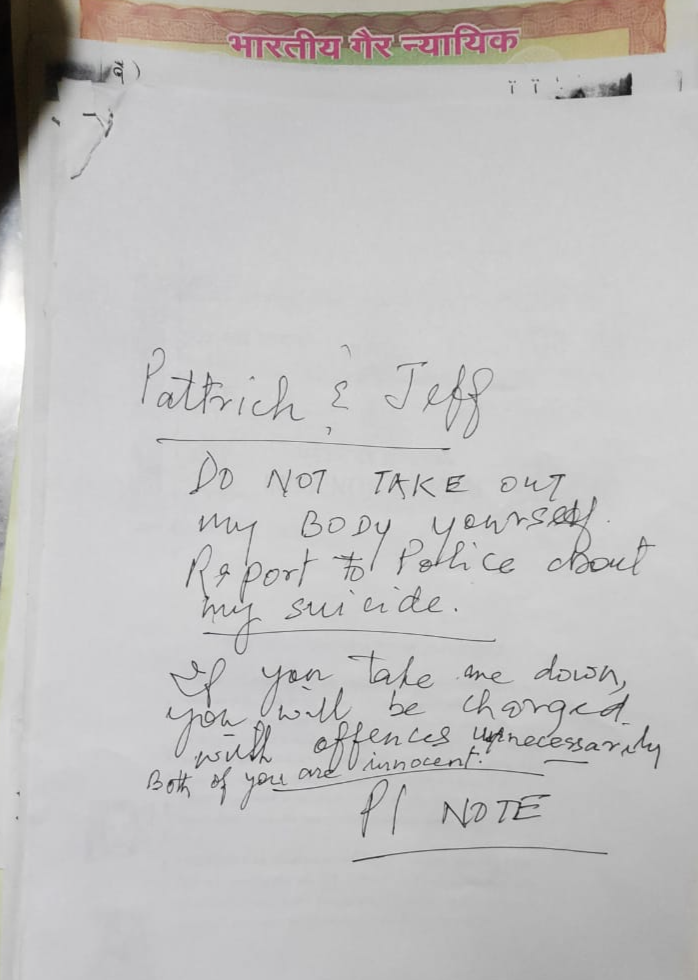 भारतीय गैर न्यायिक
Pattrich & Jeff
DO NOT TAKE OUT
my BODY yourself.
Report to Police about
my suicide.
If you take me down,
you will be charged
with offences unnecessarily
Both of you are innocent.
Pl NOTE